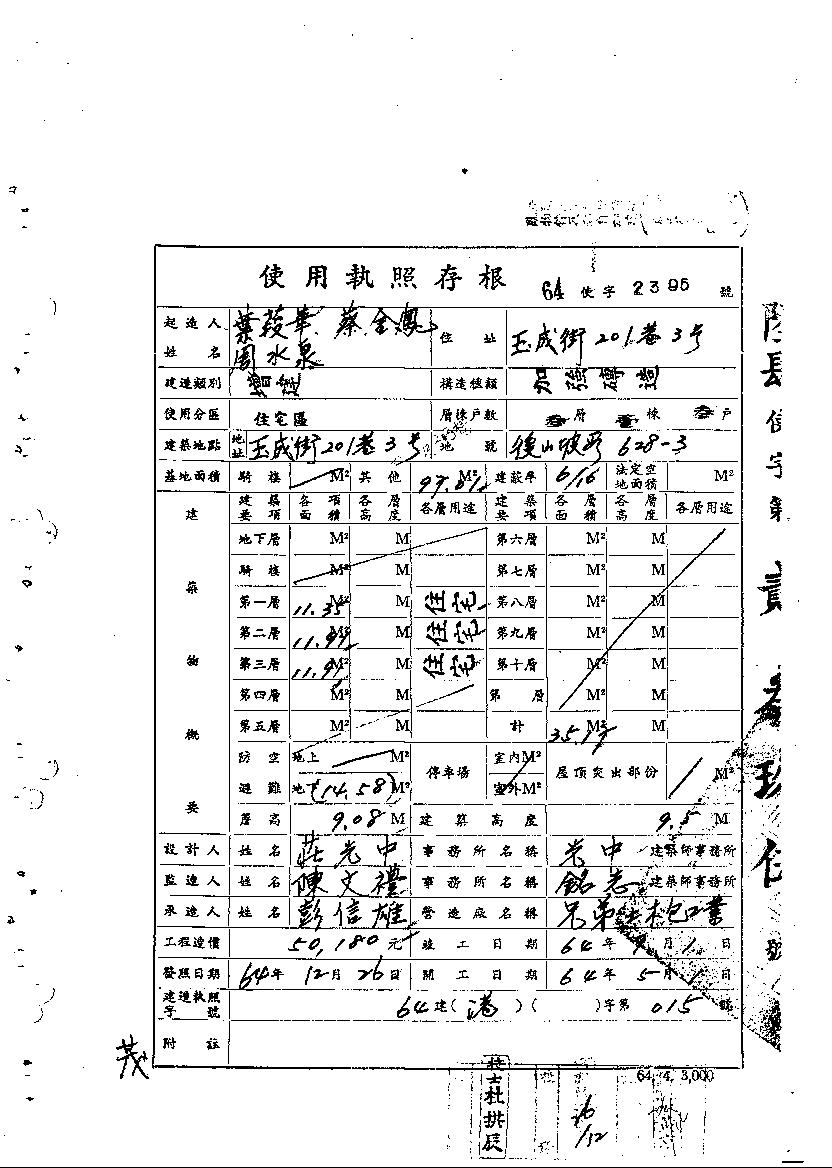 使用執照存根 64 使字 2395 號
起造人姓名 葉菽華 蔡金鳳 周水泉 住址 玉成街201巷3号
建造類別 增建 構造種類 加強磚造
使用分區 住宅區 層棟戶數 叁層 壹棟 叁戶
建築地點 地址 玉成街201巷3号 地號 後山坡段 628-3
基地面積 騎樓 M² 其他 M² 建蔽率 6/16 法定空地面積 M²
建築物概要 建築要項 各項面積 各層高度 各層用途 建築要項 各項面積 各層高度 各層用途
地下層 M² M 第六層 M² M
騎樓 M² M 第七層 M² M
第一層 11.35 M² M 住宅 第八層 M² M
第二層 M² M 住宅 第九層 M² M
第三層 M² M 住宅 第十層 M² M
第四層 M² M 第 層 M² M
第五層 M² M 計 M² M
防空避難 地上 M² 停車場 室內M² 屋頂突出部份 M²
地下(14.58)M² 室外M²
層高 9.08 M 建築高度 9.5 M
設計人 姓名 莊光中 事務所名稱 光中 建築師事務所
監造人 姓名 陳文禮 事務所名稱 銘志 建築師事務所
承造人 姓名 彭信雄 營造廠名稱 兄弟土木包工業
工程造價 50,180元 竣工日期 64年 月1日
發照日期 64年12月26日 開工日期 64年5月1日
建造執照字號 64建(港)( )字第 015 號
附註
茂
64. 4. 3,000
技士杜拱辰
26/12